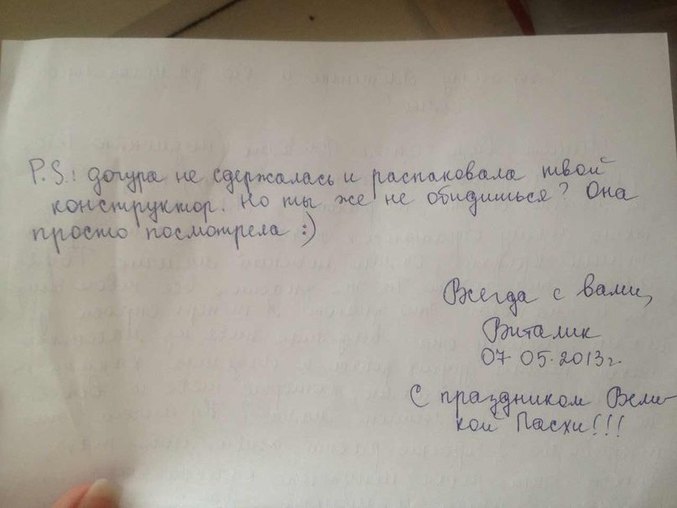 P.S.: дочура не сдержалась и распаковала твой
конструктор. Но ты же не обидишься? Она
просто посмотрела :)
Всегда с вами,
Виталик
07 05.2013г.
С праздником Вели-
кой Пасхи!!!